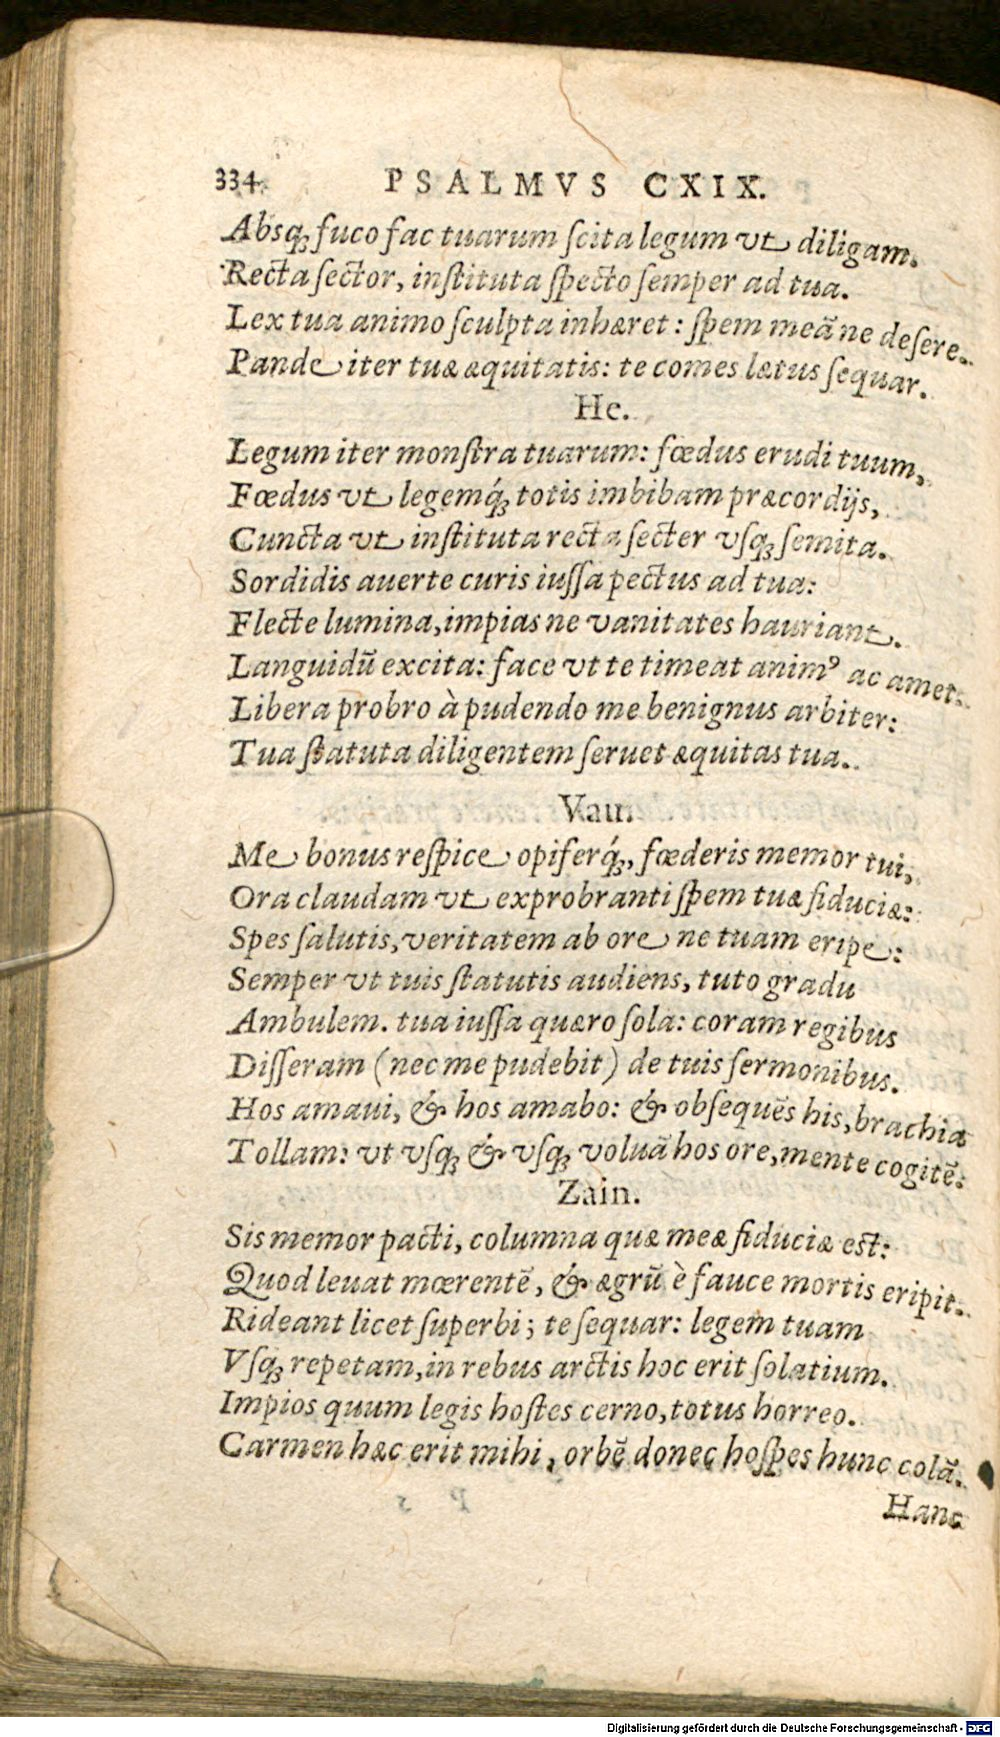 334. PSALMVS CXIX.
Absq; fuco fac tuarum ſcita legum vt diligam.
Recta ſector, inſtituta ſpecto ſemper ad tua.
Lex tua animo ſculpta inhæret: ſpem meã ne deſere.
Pande iter tuæ æquitatis: te comes lætus ſequar.
He.
Legum iter monſtra tuarum: fœdus erudi tuum,
Fœdus vt legemq́; totis imbibam præcordijs,
Cuncta vt inſtituta recta ſecter vſq; ſemita.
Sordidis auerte curis iuſſa pectus ad tua:
Flecte lumina, impias ne vanitates hauriant.
Languidũ excita: face vt te timeat animꝰ ac amet.
Libera probro à pudendo me benignus arbiter:
Tua ſtatuta diligentem ſeruet æquitas tua.
Vau.
Me bonus reſpice opiferq́;, fœderis memor tui,
Ora claudam vt exprobranti ſpem tuæ fiduciæ:
Spes ſalutis, veritatem ab ore ne tuam eripe:
Semper vt tuis ſtatutis audiens, tuto gradu
Ambulem. tua iuſſa quæro ſola: coram regibus
Diſſeram (nec me pudebit) de tuis ſermonibus.
Hos amaui, & hos amabo: & obſequẽs his, brachia
Tollam: vt vſq; & vſq; voluã hos ore, mente cogitẽ.
Zain.
Sis memor pacti, columna quæ meæ fiduciæ eſt:
Quod leuat mœrentẽ, & ægrũ è fauce mortis eripit.
Rideant licet ſuperbi; te ſequar: legem tuam
Vſq; repetam, in rebus arctis hoc erit ſolatium.
Impios quum legis hoſtes cerno, totus horreo.
Carmen hæc erit mihi, orbẽ donec hoſpes hunc colã.
Hanc
Digitalisierung gefördert durch die Deutsche Forschungsgemeinschaft - DFG